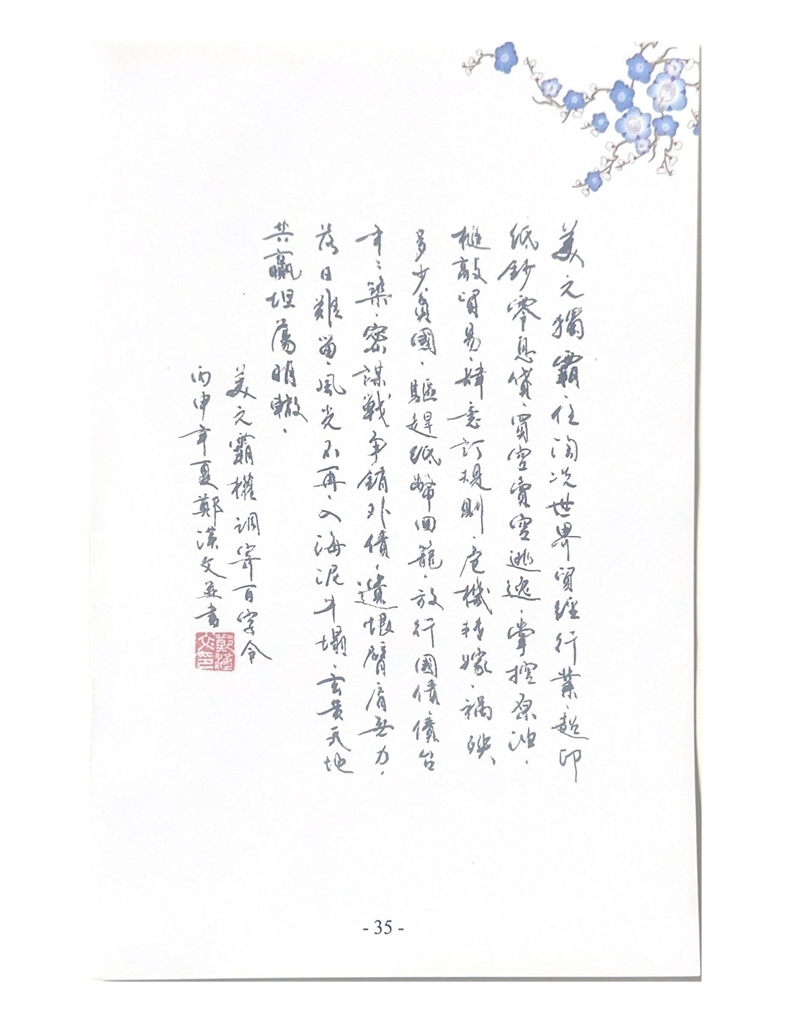 美元獨霸，任淘洗世界貿經行業。超印
紙鈔零息貸，買空賣空逃逸。掌控原油，
槌敲貿易，肆意訂規則。危機轉嫁，禍殃
多少貧國。驅趕紙幣回籠，放行國債，債台
年年築。密謀戰爭銷外債，遺恨臂肩無力。
落日難留，風光不再，入海泥牛塌。玄黃天地
共贏坦蕩明轍。
美元霸權調寄百字令
丙申年夏鄭漢文並書
鄭漢文印
- 35 -